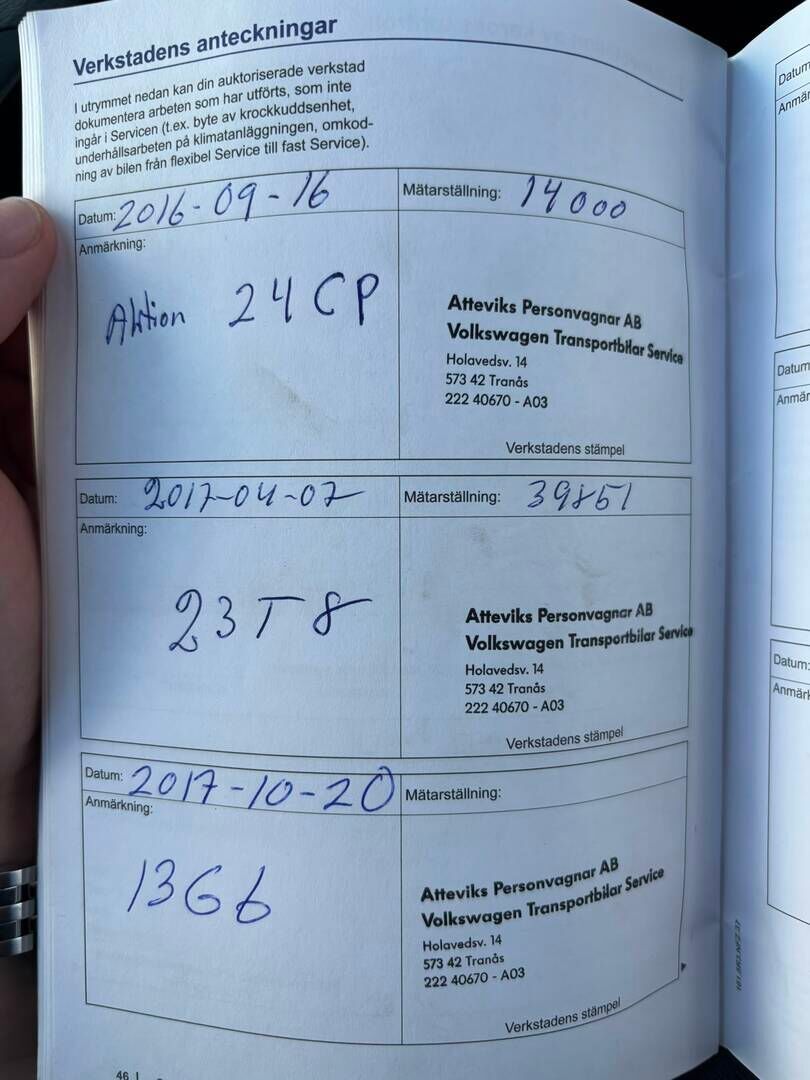 Verkstadens anteckningar
I utrymmet nedan kan din auktoriserade verkstad
dokumentera arbeten som har utförts, som inte
ingår i Servicen (t.ex. byte av krockkuddsenhet,
underhållsarbeten på klimatanläggningen, omkod-
ning av bilen från flexibel Service till fast Service).
Datum: 2016-09-16 Mätarställning: 14000
Anmärkning:
Aktion 24CP
Atteviks Personvagnar AB
Volkswagen Transportbilar Service
Holavedsv. 14
573 42 Tranås
222 40670 - A03
Verkstadens stämpel
Datum: 2017-04-07 Mätarställning: 39851
Anmärkning:
23T8
Atteviks Personvagnar AB
Volkswagen Transportbilar Service
Holavedsv. 14
573 42 Tranås
222 40670 - A03
Verkstadens stämpel
Datum: 2017-10-20 Mätarställning:
Anmärkning:
13G6
Atteviks Personvagnar AB
Volkswagen Transportbilar Service
Holavedsv. 14
573 42 Tranås
222 40670 - A03
Verkstadens stämpel
46
Datum
Anmär
Datum
Anmär
Datum:
Anmärk